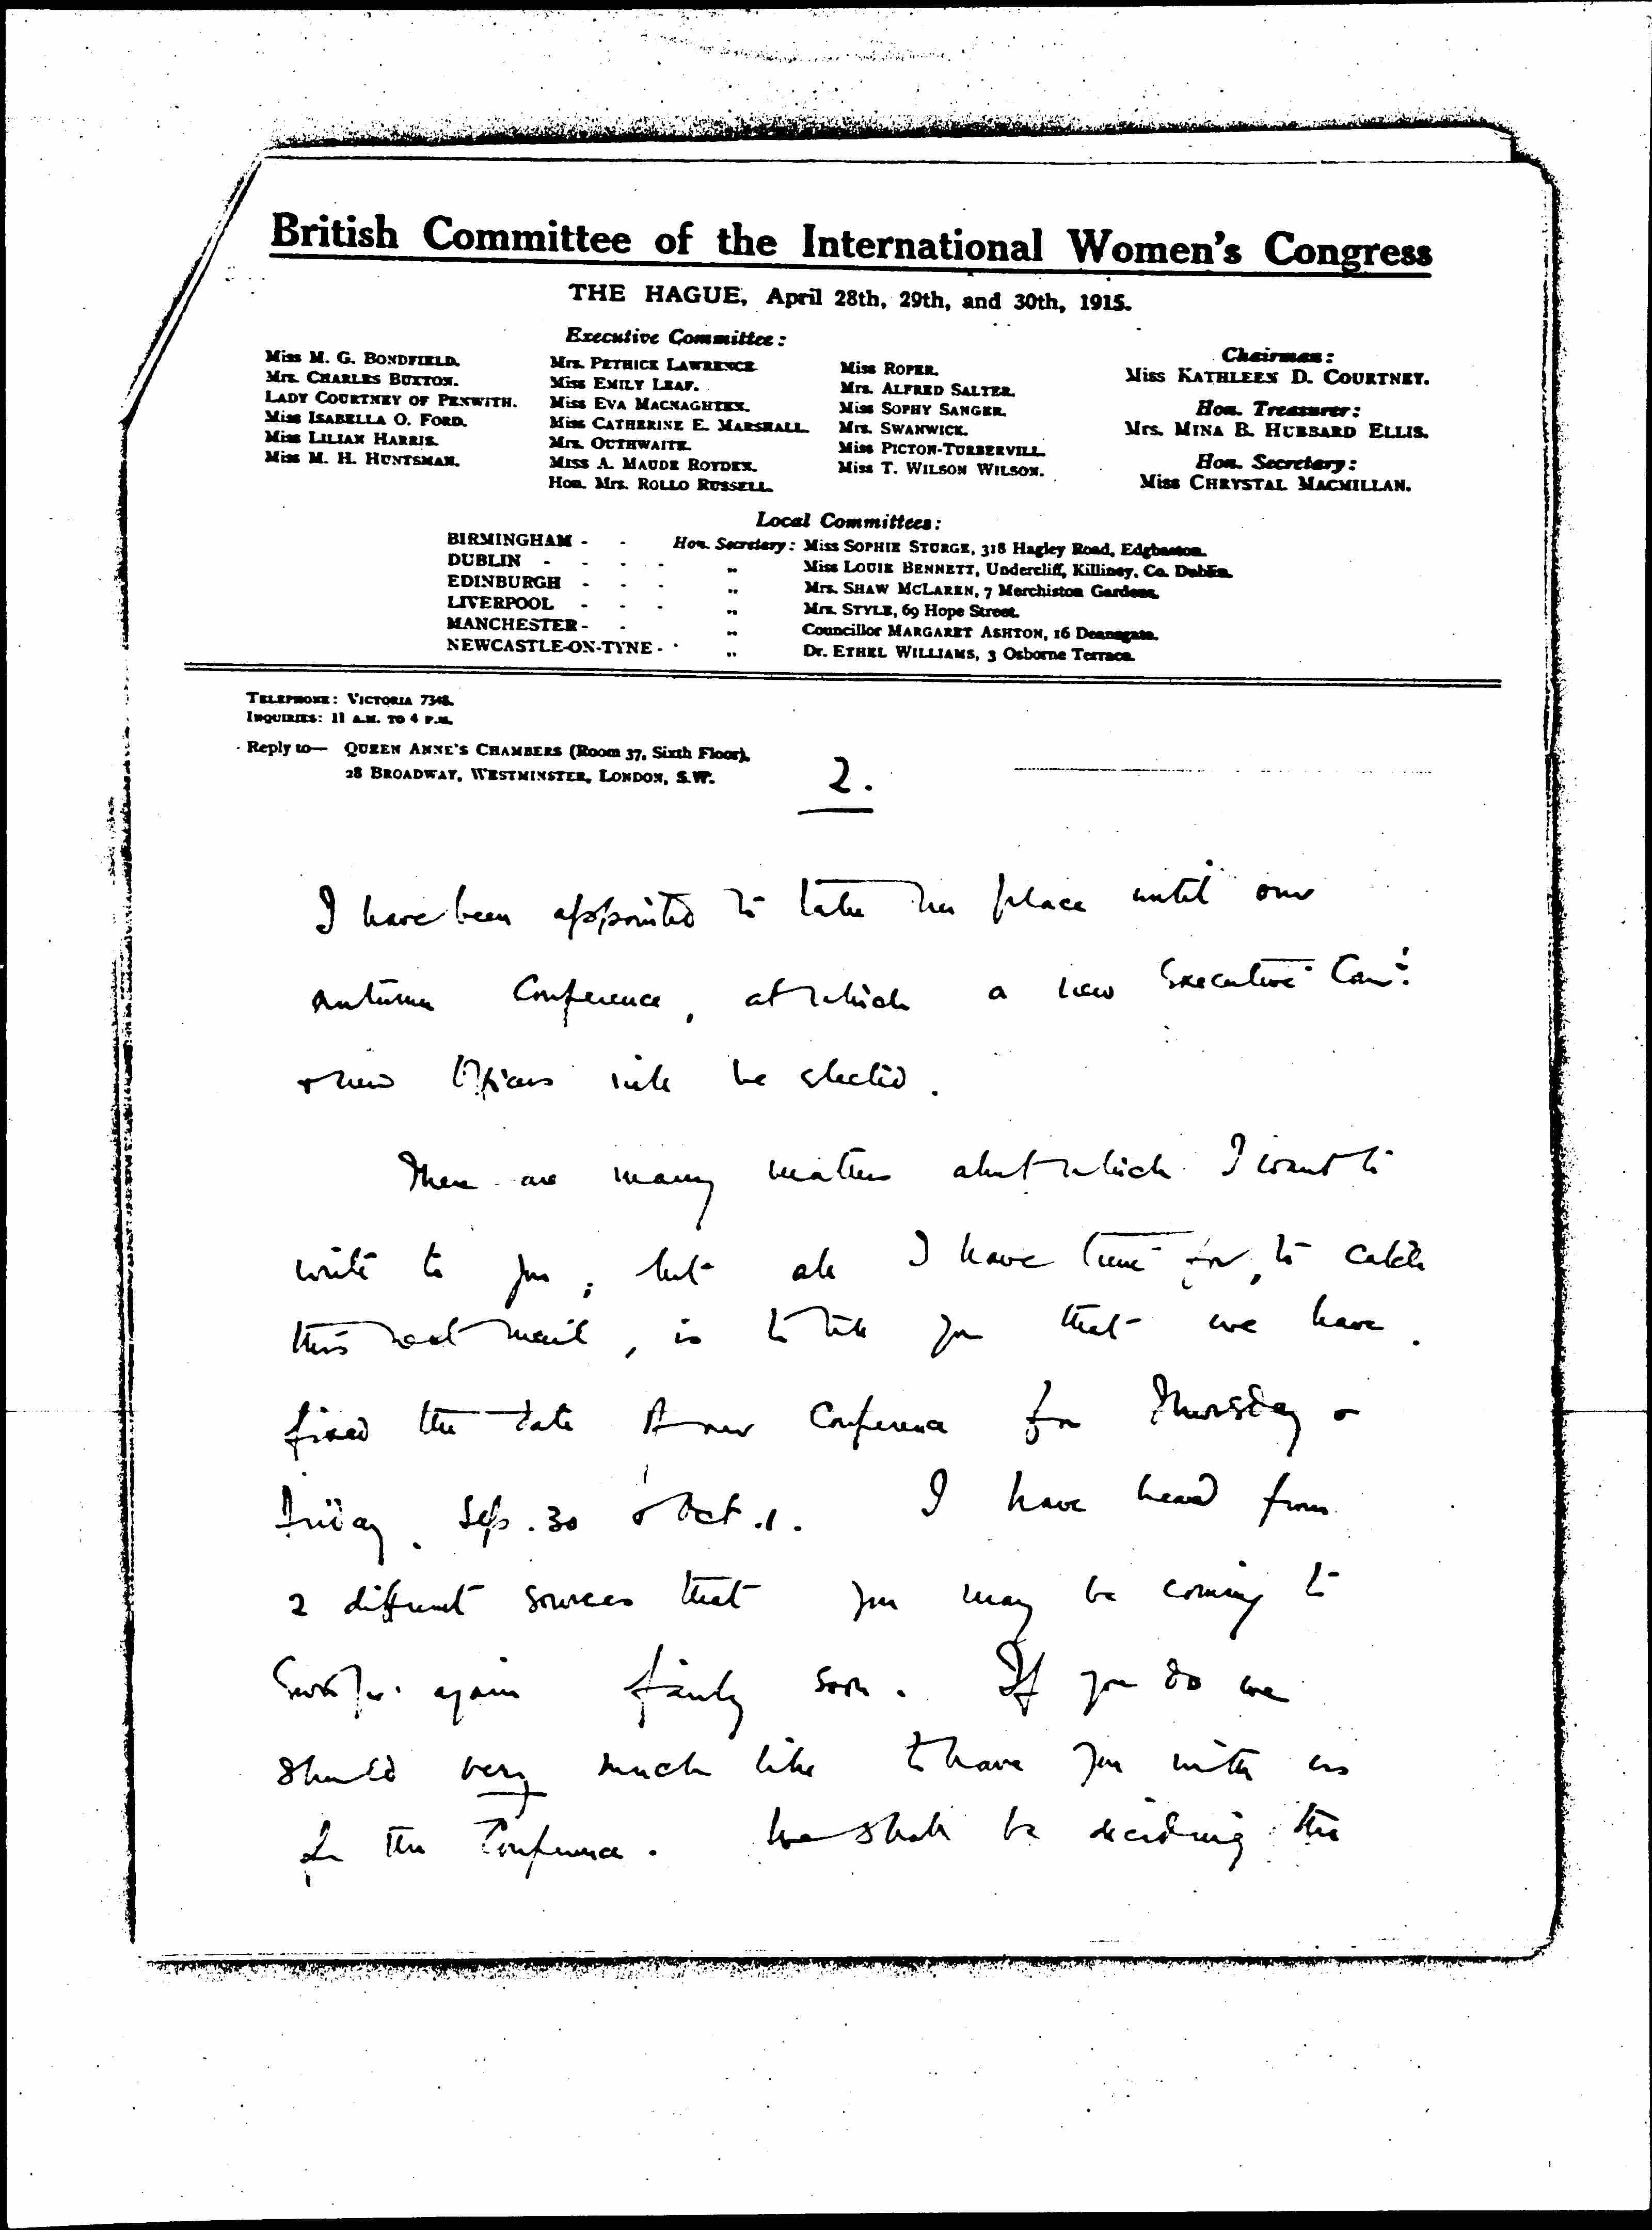 British Committee of the International Women's Congress
THE HAGUE, April 28th, 29th, and 30th, 1915.
Executive Committee:
Miss M. G. BONDFIELD.
Mrs. CHARLES BUXTON.
LADY COURTNEY OF PENWITH.
Miss ISABELLA O. FORD.
Miss LILIAN HARRIS.
Miss M. H. HUNTSMAN.
Mrs. PETHICK LAWRENCE.
Miss EMILY LEAF.
Miss EVA MACNAGHTEN.
Miss CATHERINE E. MARSHALL.
Mrs. OUTHWAITE.
MISS A. MAUDE ROYDEN.
Hon. Mrs. ROLLO RUSSELL.
Miss ROPER.
Mrs. ALFRED SALTER.
Miss SOPHY SANGER.
Mrs. SWANWICK.
Miss PICTON-TURBERVILL.
Miss T. WILSON WILSON.
Chairman:
Miss KATHLEEN D. COURTNEY.
Hon. Treasurer:
Mrs. MINA B. HUBBARD ELLIS.
Hon. Secretary:
Miss CHRYSTAL MACMILLAN.
Local Committees:
BIRMINGHAM - - Hon. Secretary: Miss SOPHIE STURGE, 318 Hagley Road, Edgbaston.
DUBLIN - - - - " Miss LOUIE BENNETT, Undercliff, Killiney, Co. Dublin.
EDINBURGH - - - " Mrs. SHAW MCLAREN, 7 Merchiston Gardens.
LIVERPOOL - - - " Mrs. STYLE, 69 Hope Street.
MANCHESTER - - " Councillor MARGARET ASHTON, 16 Deansgate.
NEWCASTLE-ON-TYNE - - " Dr. ETHEL WILLIAMS, 3 Osborne Terrace.
TELEPHONE: VICTORIA 7348.
INQUIRIES: 11 A.M. TO 4 P.M.
Reply to— QUEEN ANNE'S CHAMBERS (Room 37, Sixth Floor),
28 BROADWAY, WESTMINSTER, LONDON, S.W.
2.
I have been appointed to take her place until our
autumn Conference, at which a new Executive Comt.
& new Officers will be elected.
There are many matters about which I want to
write to you; but all I have time for, to catch
this next mail, is to tell you that we have
fixed the date of our Conference for Thursday &
Friday. Sep. 30 & Oct. 1. I have heard from
2 different sources that you may be coming to
again fairly soon. If you do we
should very much like to have you with us
for the Conference. We shall be deciding the